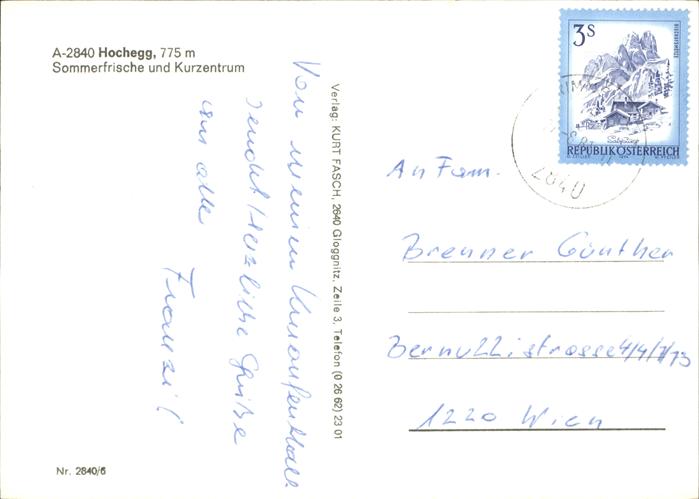 A-2840 Hochegg, 775 m
Sommerfrische und Kurzentrum
Von meinem Kuraufenthalt
sendet Herzliche Grüße
an alle
Franzi
Nr. 2840/6
Verlag: KURT FASCH, 2640 Gloggnitz, Zeile 3, Telefon (0 26 62) 23 01
3 S
BISCHOFSMÜTZE
Salzburg
REPUBLIK ÖSTERREICH
2840
An Fam.
Brenner Günther
Bernullistrasse 4/4/7/73
1220 Wien